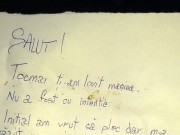 SALUT!
Tocmai ti-am lovit masina.
Nu a fost cu intentie.
Initial am vrut să plec dar m-a